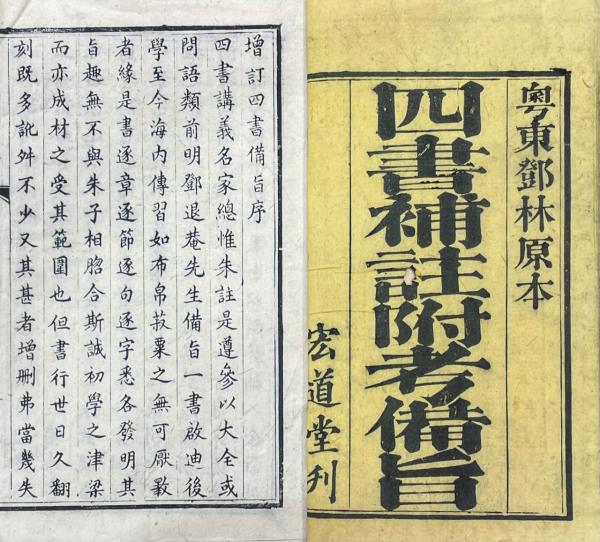 粵東鄧林原本
四書補註附考備旨
宏道堂刋
增訂四書備旨序
四書講義名家總惟朱註是遵參以大全或
問語類前明鄧退菴先生備旨一書啟迪後
學至今海內傳習如布帛菽粟之無可厭斁
者緣是書逐章逐節逐句逐字悉各發明其
旨趣無不與朱子相脗合斯誠初學之津梁
而亦成材之受其範圍也但書行世日久翻
刻既多訛舛不少又其甚者增刪弗當幾失